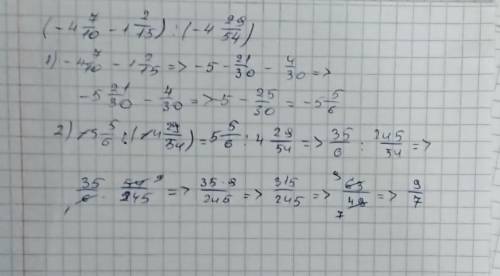 (-4 7/10 - 1 2/15) : (-4 29/54)
1) -4 7/10 - 1 2/15 => -5 - 21/30 - 4/30 =>
-5 21/30 - 4/30 => 5 - 25/30 = -5 5/6
2) -5 5/6 : (-4 29/54) = 5 5/6 : 4 29/54 => 35/6 : 245/54 =>
35/6 · 54 9/245 => 35·9/245 => 315/245 => 9 63/49 7 => 9/7